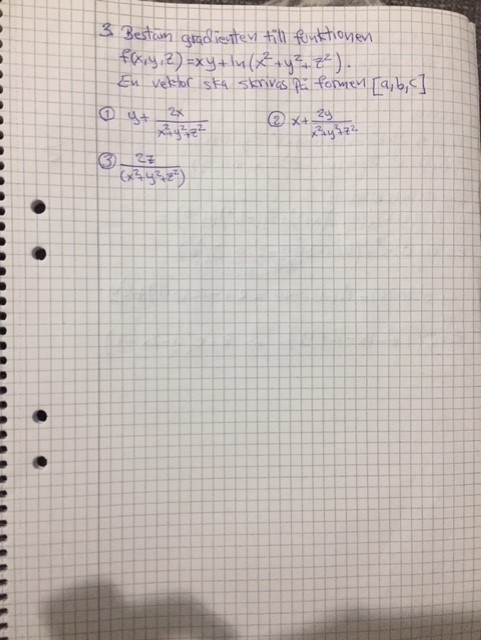 3. Bestäm gradienten till funktionen
f(x,y,z) = xy + ln(x² + y² + z²).
En vektor ska skrivas på formen [a,b,c]
① y + 2x/(x²+y²+z²) ② x + 2y/(x²+y²+z²)
③ 2z/(x²+y²+z²)